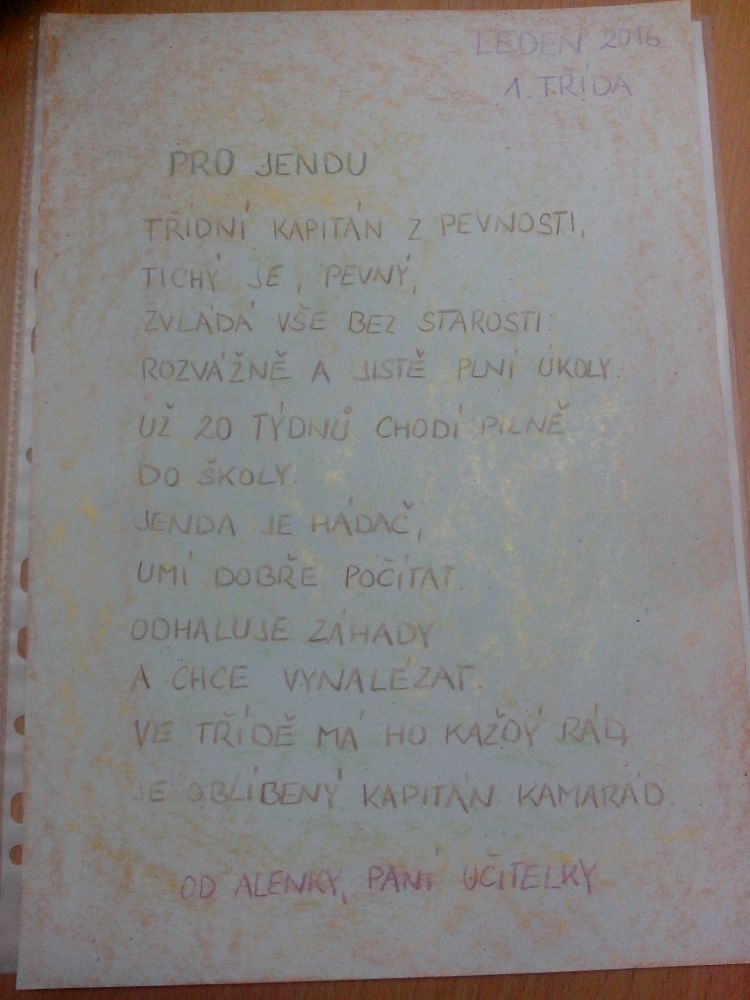 LEDEN 2016
1. TŘÍDA
PRO JENDU
TŘÍDNÍ KAPITÁN Z PEVNOSTI,
TICHÝ JE, PEVNÝ,
ZVLÁDÁ VŠE BEZ STAROSTI.
ROZVÁŽNĚ A JISTĚ PLNÍ ÚKOLY.
UŽ 20 TÝDNŮ CHODÍ PILNĚ
DO ŠKOLY.
JENDA JE HÁDAČ,
UMÍ DOBŘE POČÍTAT.
ODHALUJE ZÁHADY
A CHCE VYNALÉZAT.
VE TŘÍDĚ MÁ HO KAŽDÝ RÁD,
JE OBLÍBENÝ KAPITÁN KAMARÁD.
OD ALENKY, PANÍ UČITELKY